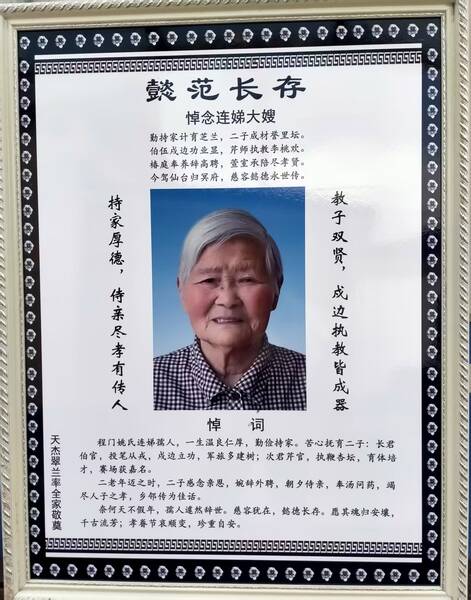 懿范长存
悼念连娣大嫂
勤持家计育芝兰，二子成材誉里坛。
伯伍戍边功业显，芹师执教李桃欢。
椿庭奉养辞高聘，萱室承陪尽孝贤。
今驾仙台归冥府，慈容懿德永世传。
教子双贤，戍边执教皆成器
持家厚德，侍亲尽孝有传人
悼 词
程门姚氏连娣孺人，一生温良仁厚，勤俭持家。苦心抚育二子：长君
伯官，投笔从戎，戍边立功，军旅多建树；次君芹官，执鞭杏坛，育体培
才，赛场获嘉名。
二老年迈之时，二子感念亲恩，婉辞外聘，朝夕侍亲，奉汤问药，竭
尽人子之孝，乡邻传为佳话。
奈何天不假年，孺人遽然辞世。慈容犹在，懿德长存。愿其魂归安壤，
千古流芳；孝眷节哀顺变，珍重自安。
天杰翠兰率全家敬奠